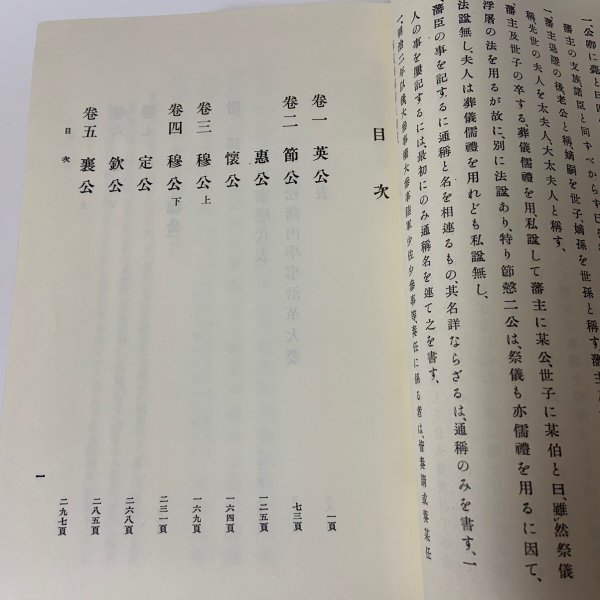 一、公卿に薨と曰
藩主の支族諸臣と同す
一、藩主退隱の後老公と稱、嫡嗣を世子、嫡孫を世孫と稱す、
稱、先世の夫人を太夫人、大太夫人と稱す、
藩主及世子の卒する、葬儀儒禮を用、私諡して藩主に某公、世子に某伯と曰、雖然祭儀
浮屠の法を用るが故に、別に法諡あり、特り節愨二公は、祭儀も亦儒禮を用るに因て、
法諡無し、夫人は葬儀儒禮を用れども私諡無し、
藩臣の事を記するに通稱と名を相連るもの、其名詳ならざるは、通稱のみを書す、一
人の事を屢記するには、最初にのみ通稱名を連て之を書す、
目次
卷一 英公 一頁
卷二 節公 七三頁
惠公 一二五頁
懷公 一六四頁
卷三 穆公上 一六九頁
卷四 穆公下 二三一頁
定公 二六八頁
欽公 二八五頁
卷五 襄公上 二九七頁
目次
一